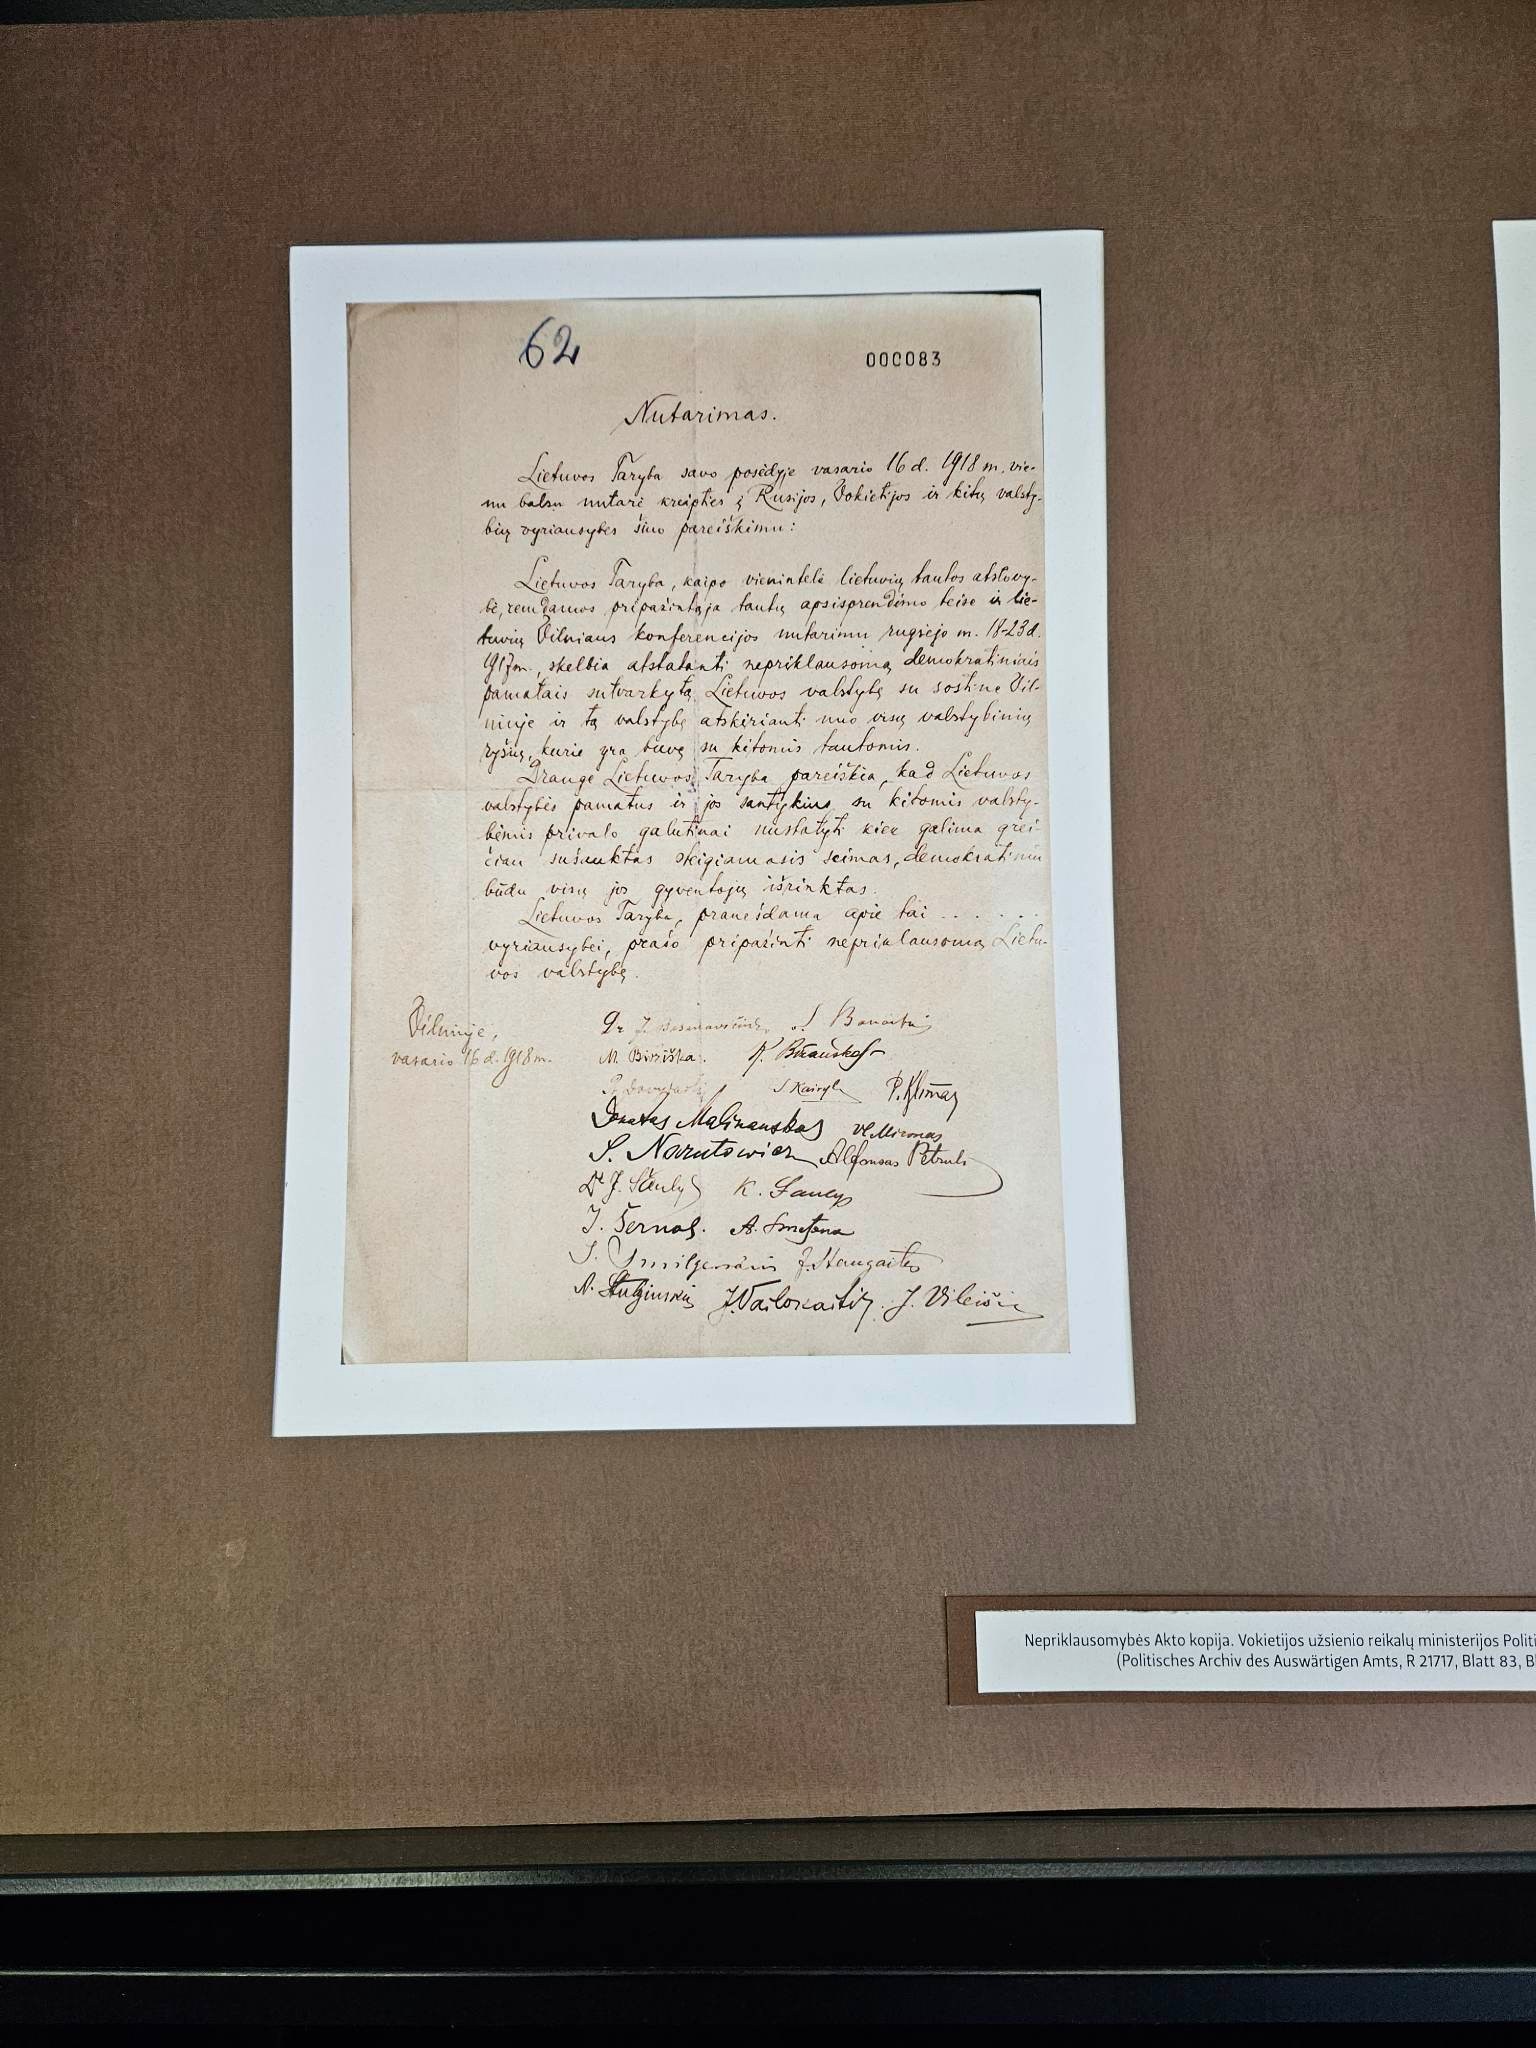 62
000083
Nutarimas.
Lietuvos Taryba savo posėdyje vasario 16 d. 1918 m. vie-
nu balsu nutarė kreipties į Rusijos, Vokietijos ir kitų valsty-
bių vyriausybes šiuo pareiškimu:
Lietuvos Taryba, kaipo vienintelė lietuvių tautos atstovy-
bė, remdamos pripažintąja tautų apsisprendimo teise ir lie-
tuvių Vilniaus konferencijos nutarimu rugsėjo m. 18-23 d.
1917 m., skelbia atstatanti nepriklausomą demokratiniais
pamatais sutvarkytą Lietuvos valstybę su sostine Vil-
niuje ir tą valstybę atskirianti nuo visų valstybinių
ryšių, kurie yra buvę su kitomis tautomis.
Drauge Lietuvos Taryba pareiškia, kad Lietuvos
valstybės pamatus ir jos santykius su kitomis valsty-
bėmis privalo galutinai nustatyti kiek galima grei-
čiau sušauktas steigiamasis seimas, demokratiniu
būdu visų jos gyventojų išrinktas.
Lietuvos Taryba, pranešdama apie tai . . . . . .
vyriausybei, prašo pripažinti nepriklausomą Lietu-
vos valstybę.
Vilniuje,
vasario 16 d. 1918 m.
Dr J. Basanavičius S. Banaitis
M. Biržiška. K. Bizauskas
Pr. Dovydaitis S Kairys P. Klimas
Donatas Malinauskas Vl. Mironas
S. Narutowicz Alfonsas Petrulis
Dr J. Šaulys K. Šaulys
J. Šernas. A. Smetona
J. Smilgevičius J. Staugaitis
A. Stulginskis J. Vailokaitis. J. Vileišis
Nepriklausomybės Akto kopija. Vokietijos užsienio reikalų ministerijos
(Politisches Archiv des Auswärtigen Amts, R 21717, Blatt 83,